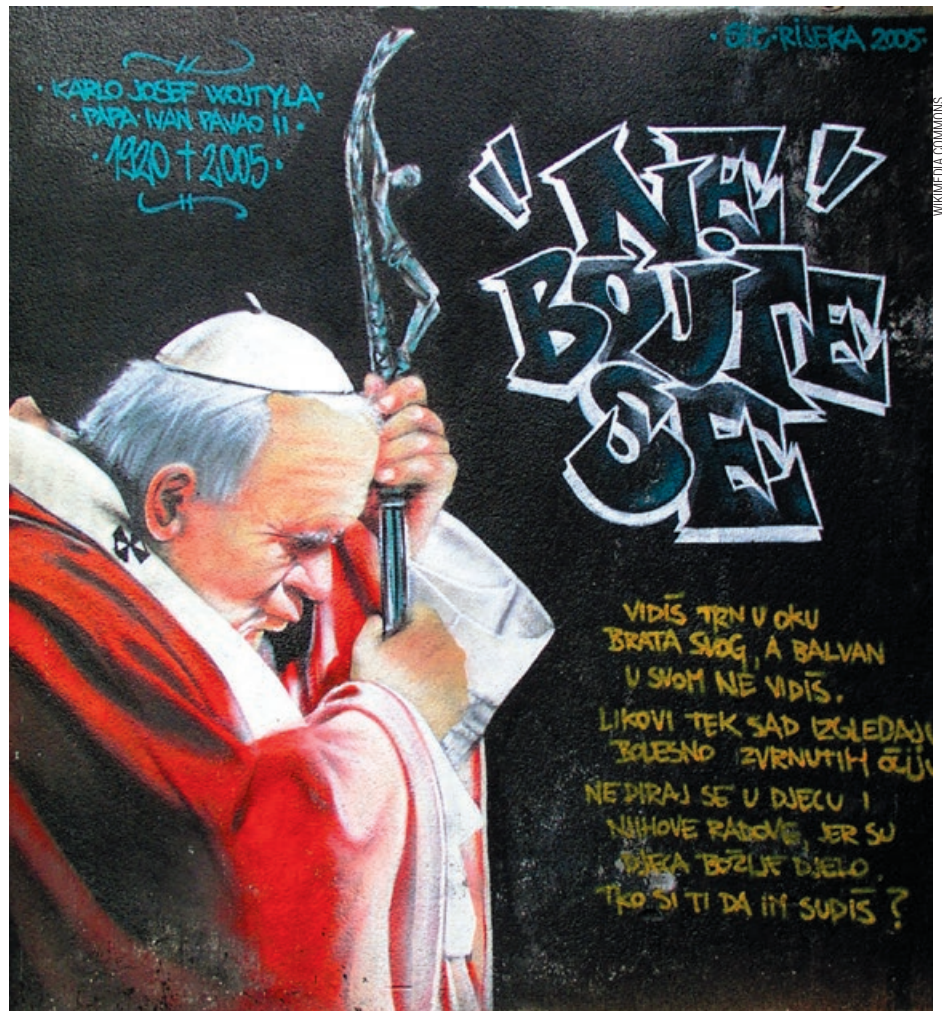 · KARLO JOSEF WOJTYLA ·
· PAPA · IVAN PAVAO II ·
· 1920 † 2005 ·
· SEC · RIJEKA 2005 ·
"NE"
BOJTE
SE
VIDIŠ TRN U OKU
BRATA SVOG, A BALVAN
U SVOM NE VIDIŠ.
LIKOVI TEK SAD IZGLEDAJU
BOLESNO ZVRNUTIH OČIJU
NE DIRAJ SE U DJECU I
NJIHOVE RADOVE, JER SU
DJECA BOŽIJE DJELO.
TKO SI TI DA IM SUDIŠ?
WIKIMEDIA COMMONS